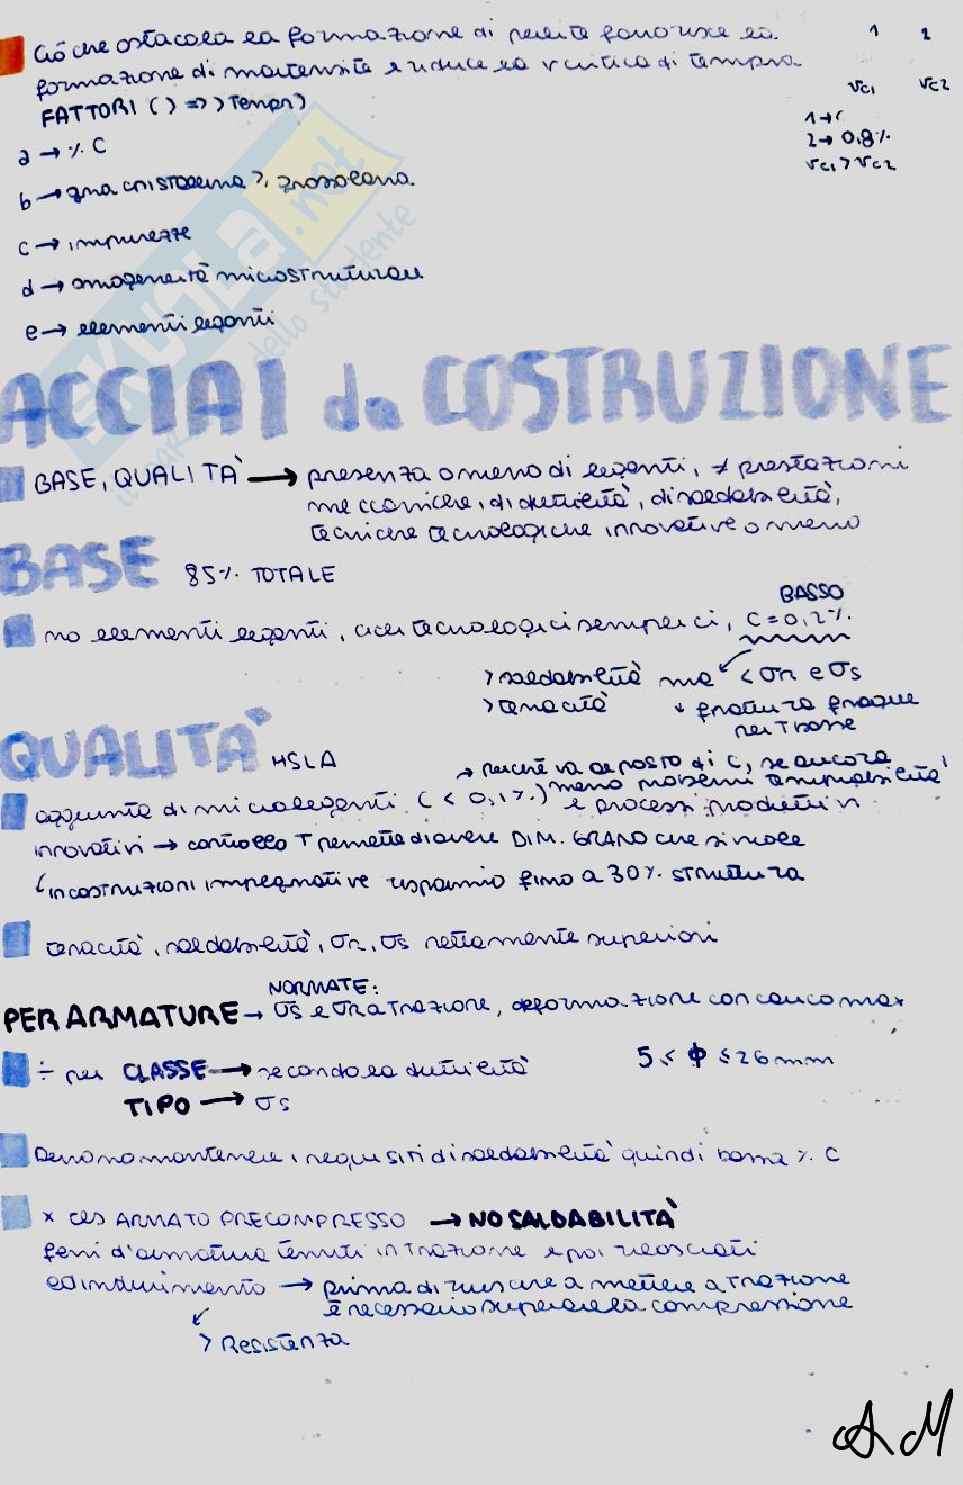 Ciò che ostacola la formazione di perlite favorisce la 1 2
formazione di martensite e riduce la v critica di tempra
FATTORI ( ) => > Tempr) vc1 vc2
1→
a → % C 2→ 0,8%
vc1 > vc2
b → grana cristallina >, grossolana.
c → impurezze
d → omogeneità microstrutturale
e → elementi leganti
SKUOLA.net
dello studente
ACCIAI da COSTRUZIONE
BASE, QUALITÀ → presenza o meno di leganti, ≠ prestazioni
meccaniche, di duttilità, di saldabilità,
tecniche tecnologiche innovative o meno
BASE 85% TOTALE
BASSO
no elementi leganti, cicli tecnologici semplici, C=0,2%
> saldabilità ma < σr e σs
> tenacità frattura fragile
per T basse
QUALITÀ HSLA
→ perché va al posto di C, se ancora
aggiunta di microleganti (< 0,1%) meno problemi temprabilità
e processi produttivi
innovativi → controllo T permette di avere DIM. GRANO che si vuole
in costruzioni impegnative risparmio fino a 30% struttura
tenacità, saldabilità, σr, σs nettamente superiori
NORMATE:
PER ARMATURE → σs e σr a TRAZIONE, deformazione con carico max
÷ per CLASSE → seconda la duttilità 5 ≤ ϕ ≤ 26 mm
TIPO → σs
Devono mantenere i requisiti di saldabilità quindi bassa % C
x cls ARMATO PRECOMPRESSO → NO SALDABILITÀ
ferri d'armatura tenuti in trazione e poi rilasciati
ad indurimento → prima di riuscire a mettere a trazione
è necessario superare la compressione
> Resistenza
AM